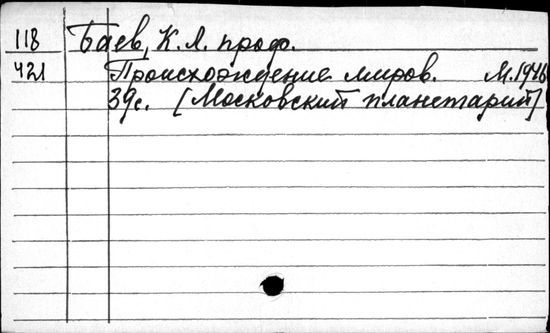 118 Баев, К. Л. проф.
421 Происхождение миров. М. 1946
39с. [Московский планетарий]